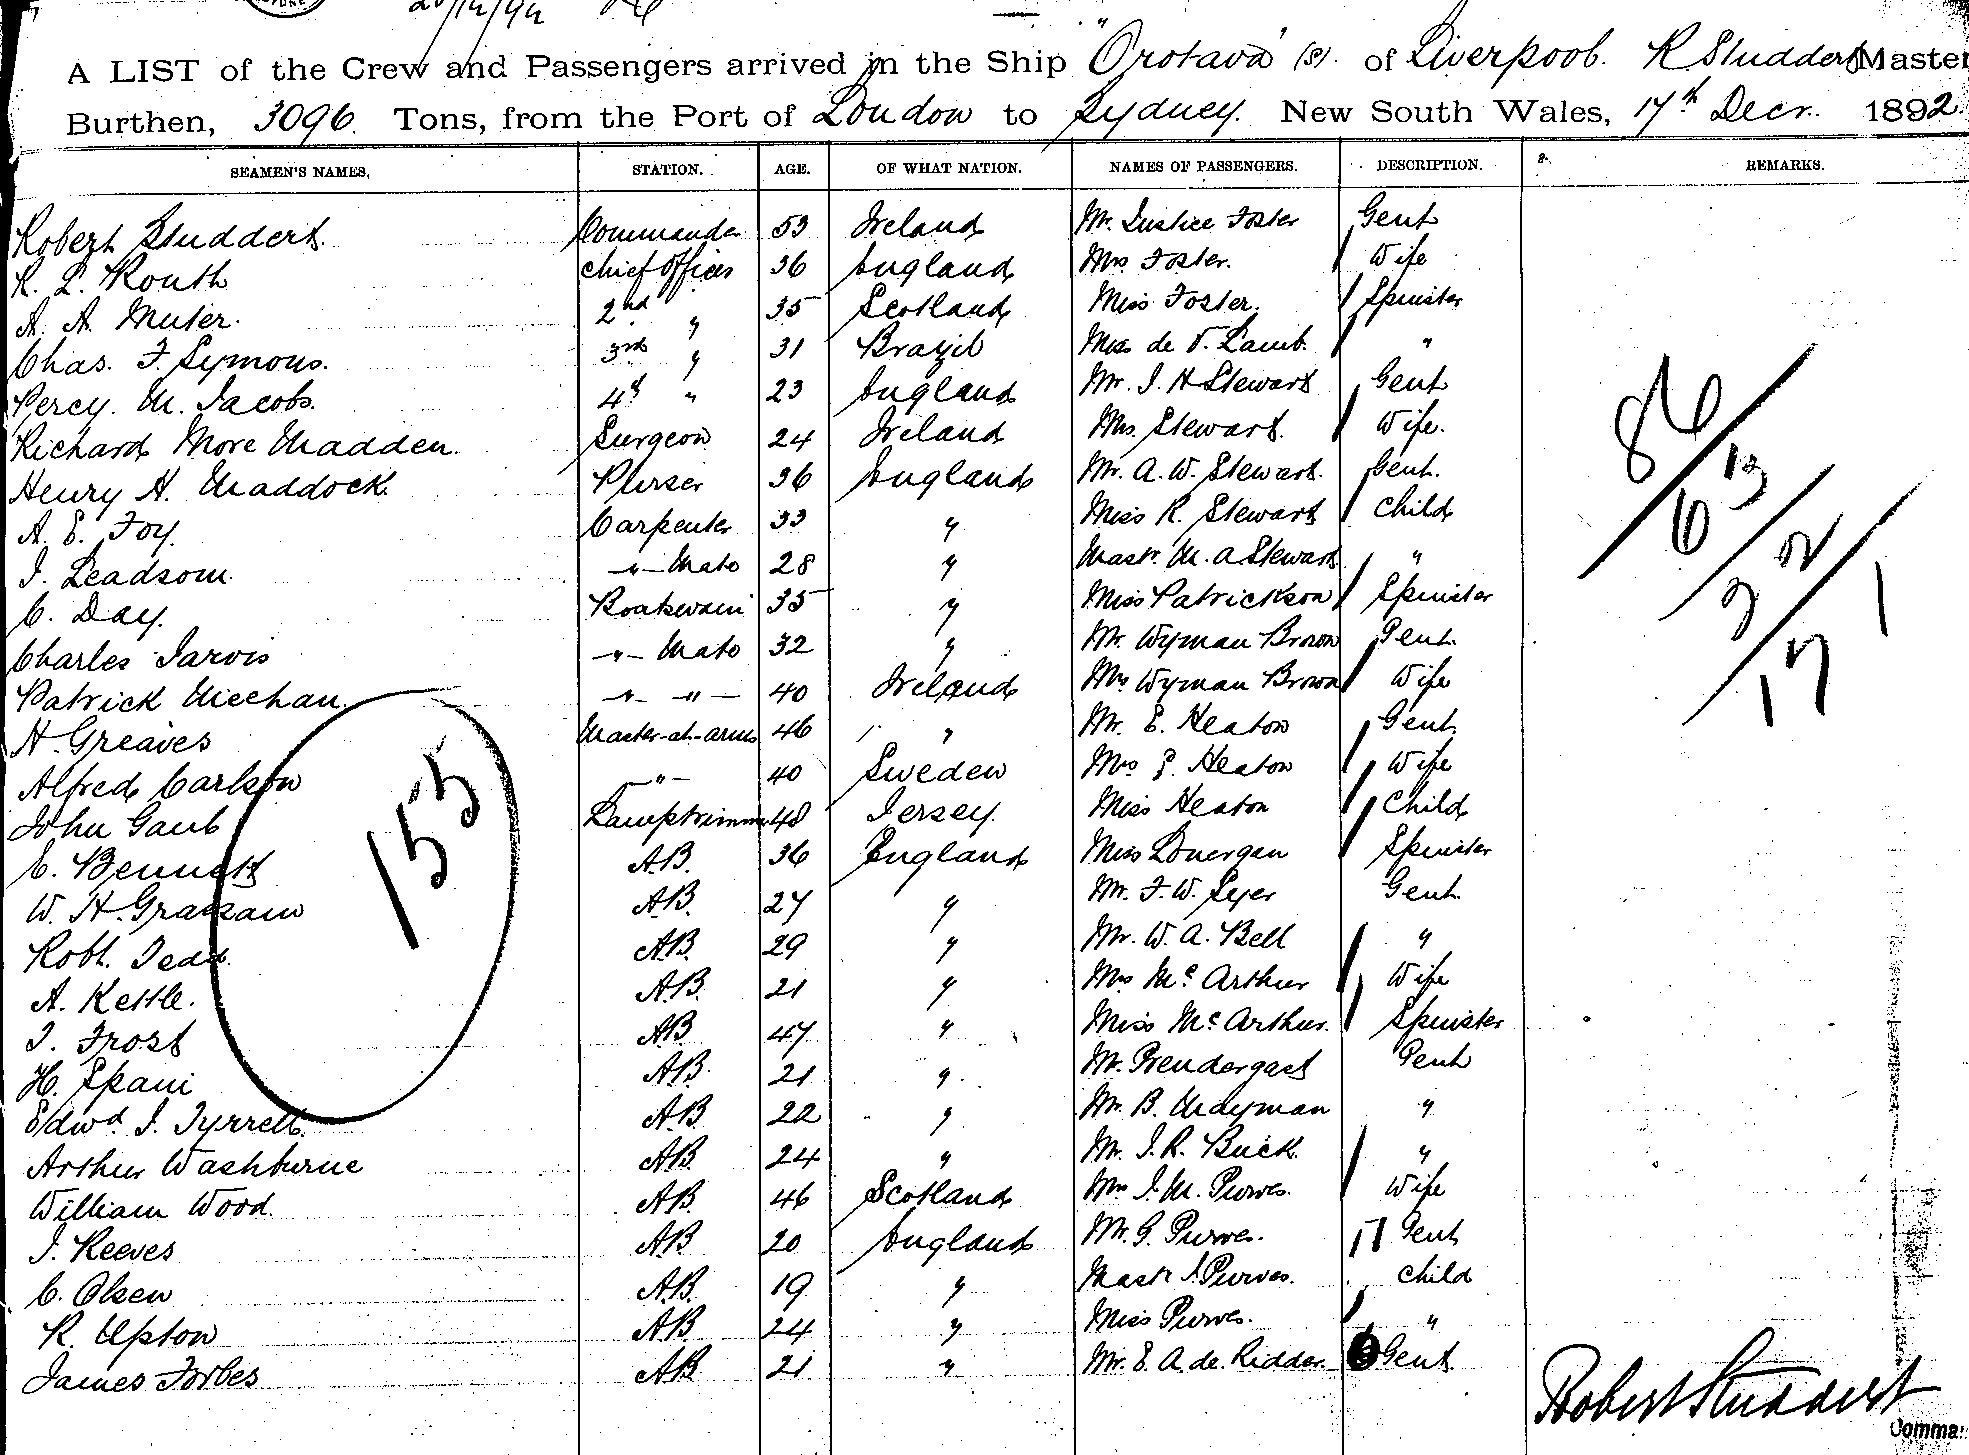 A LIST of the Crew and Passengers arrived in the Ship "Orotava" (s). of Liverpool. R Studdert Master
Burthen, 3096 Tons, from the Port of London to Sydney. New South Wales, 17th Decr. 1892.
SEAMEN'S NAMES, STATION. AGE. OF WHAT NATION. NAMES OF PASSENGERS. DESCRIPTION. REMARKS.
Robert Studdert. Commander 53 Ireland Mr. Justice Foster Gent
R. L. Routh Chief Officer 36 England Mrs Foster. Wife
A. A. Muter. 2nd " 35 Scotland Miss Foster. Spinster
Chas. F. Symons. 3rd " 31 Brazil Miss de V. Lamb. "
Percy. M. Jacobs. 4th " 23 England Mr. J. H Stewart Gent
Richard More Madden. Surgeon 24 Ireland Mrs. Stewart. Wife.
Henry H. Maddock. Purser 36 England Mr. A. W. Stewart. Gent.
A. E. Foy. Carpenter 33 " Miss R. Stewart Child
J. Leadsom. -"- Mate 28 " Mastr. M. A Stewart "
C. Day. Boatswain 35 " Miss Patrickson Spinster
Charles Jarvis -"- Mate 32 " Mr. Wyman Brown Gent.
Patrick Meehan. -"- -"- 40 Ireland Mrs Wyman Brown Wife
H. Greaves Master-at-arms 46 " Mr. E. Heaton Gent
Alfred Carlson -"- 40 Sweden Mrs E. Heaton Wife
John Gaub Lamptrimmer 48 Jersey. Miss Heaton Child
C. Bennett A.B. 36 England Miss Lonergan Spinster
W. H. A.B. 27 " Mr. F. W. Syer Gent.
Robt. A.B. 29 " Mr. W. A. Bell "
A. Kettle. A.B. 21 " Mrs McArthur Wife
J. Frost A.B. 47 " Miss McArthur. Spinster
H. Spani A.B. 21 " Mr. Prendergast Gent
Edwd J. Tyrrell. A.B. 22 " Mr. B. Wayman "
Arthur Washburne A.B. 24 " Mr. J. R. Buick. "
William Wood. A.B. 46 Scotland Mrs J. M. Purves. Wife
J. Reeves A.B. 20 England Mr. G. Purves. Gent
C. Olsen A.B. 19 " Mastr J. Purves. Child
R. Upton A.B. 24 " Miss Purves. "
James Forbes A.B. 21 " Mr. E. A. de Ridder. Gent
155
86/13
63/2
2/1
17
Robert Studdert
Comma